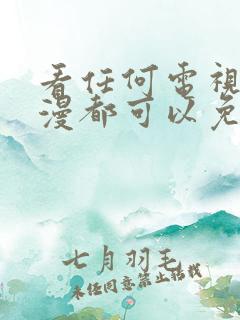 看任何電視
漫都可以免
七月羽毛
未经同意禁止转载